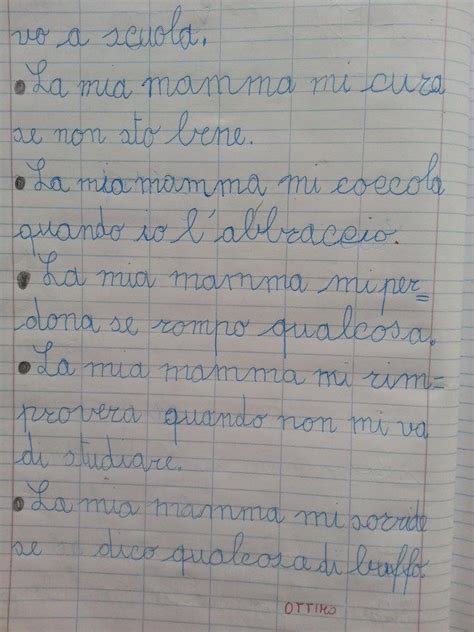 vo a scuola.
• La mia mamma mi cura
se non sto bene.
• La mia mamma mi coccola
quando io l'abbraccio.
• La mia mamma mi per=
dona se rompo qualcosa.
• La mia mamma mi rim=
provera quando non mi va
di studiare.
• La mia mamma mi sorride
se dico qualcosa di buffo.
OTTIMO